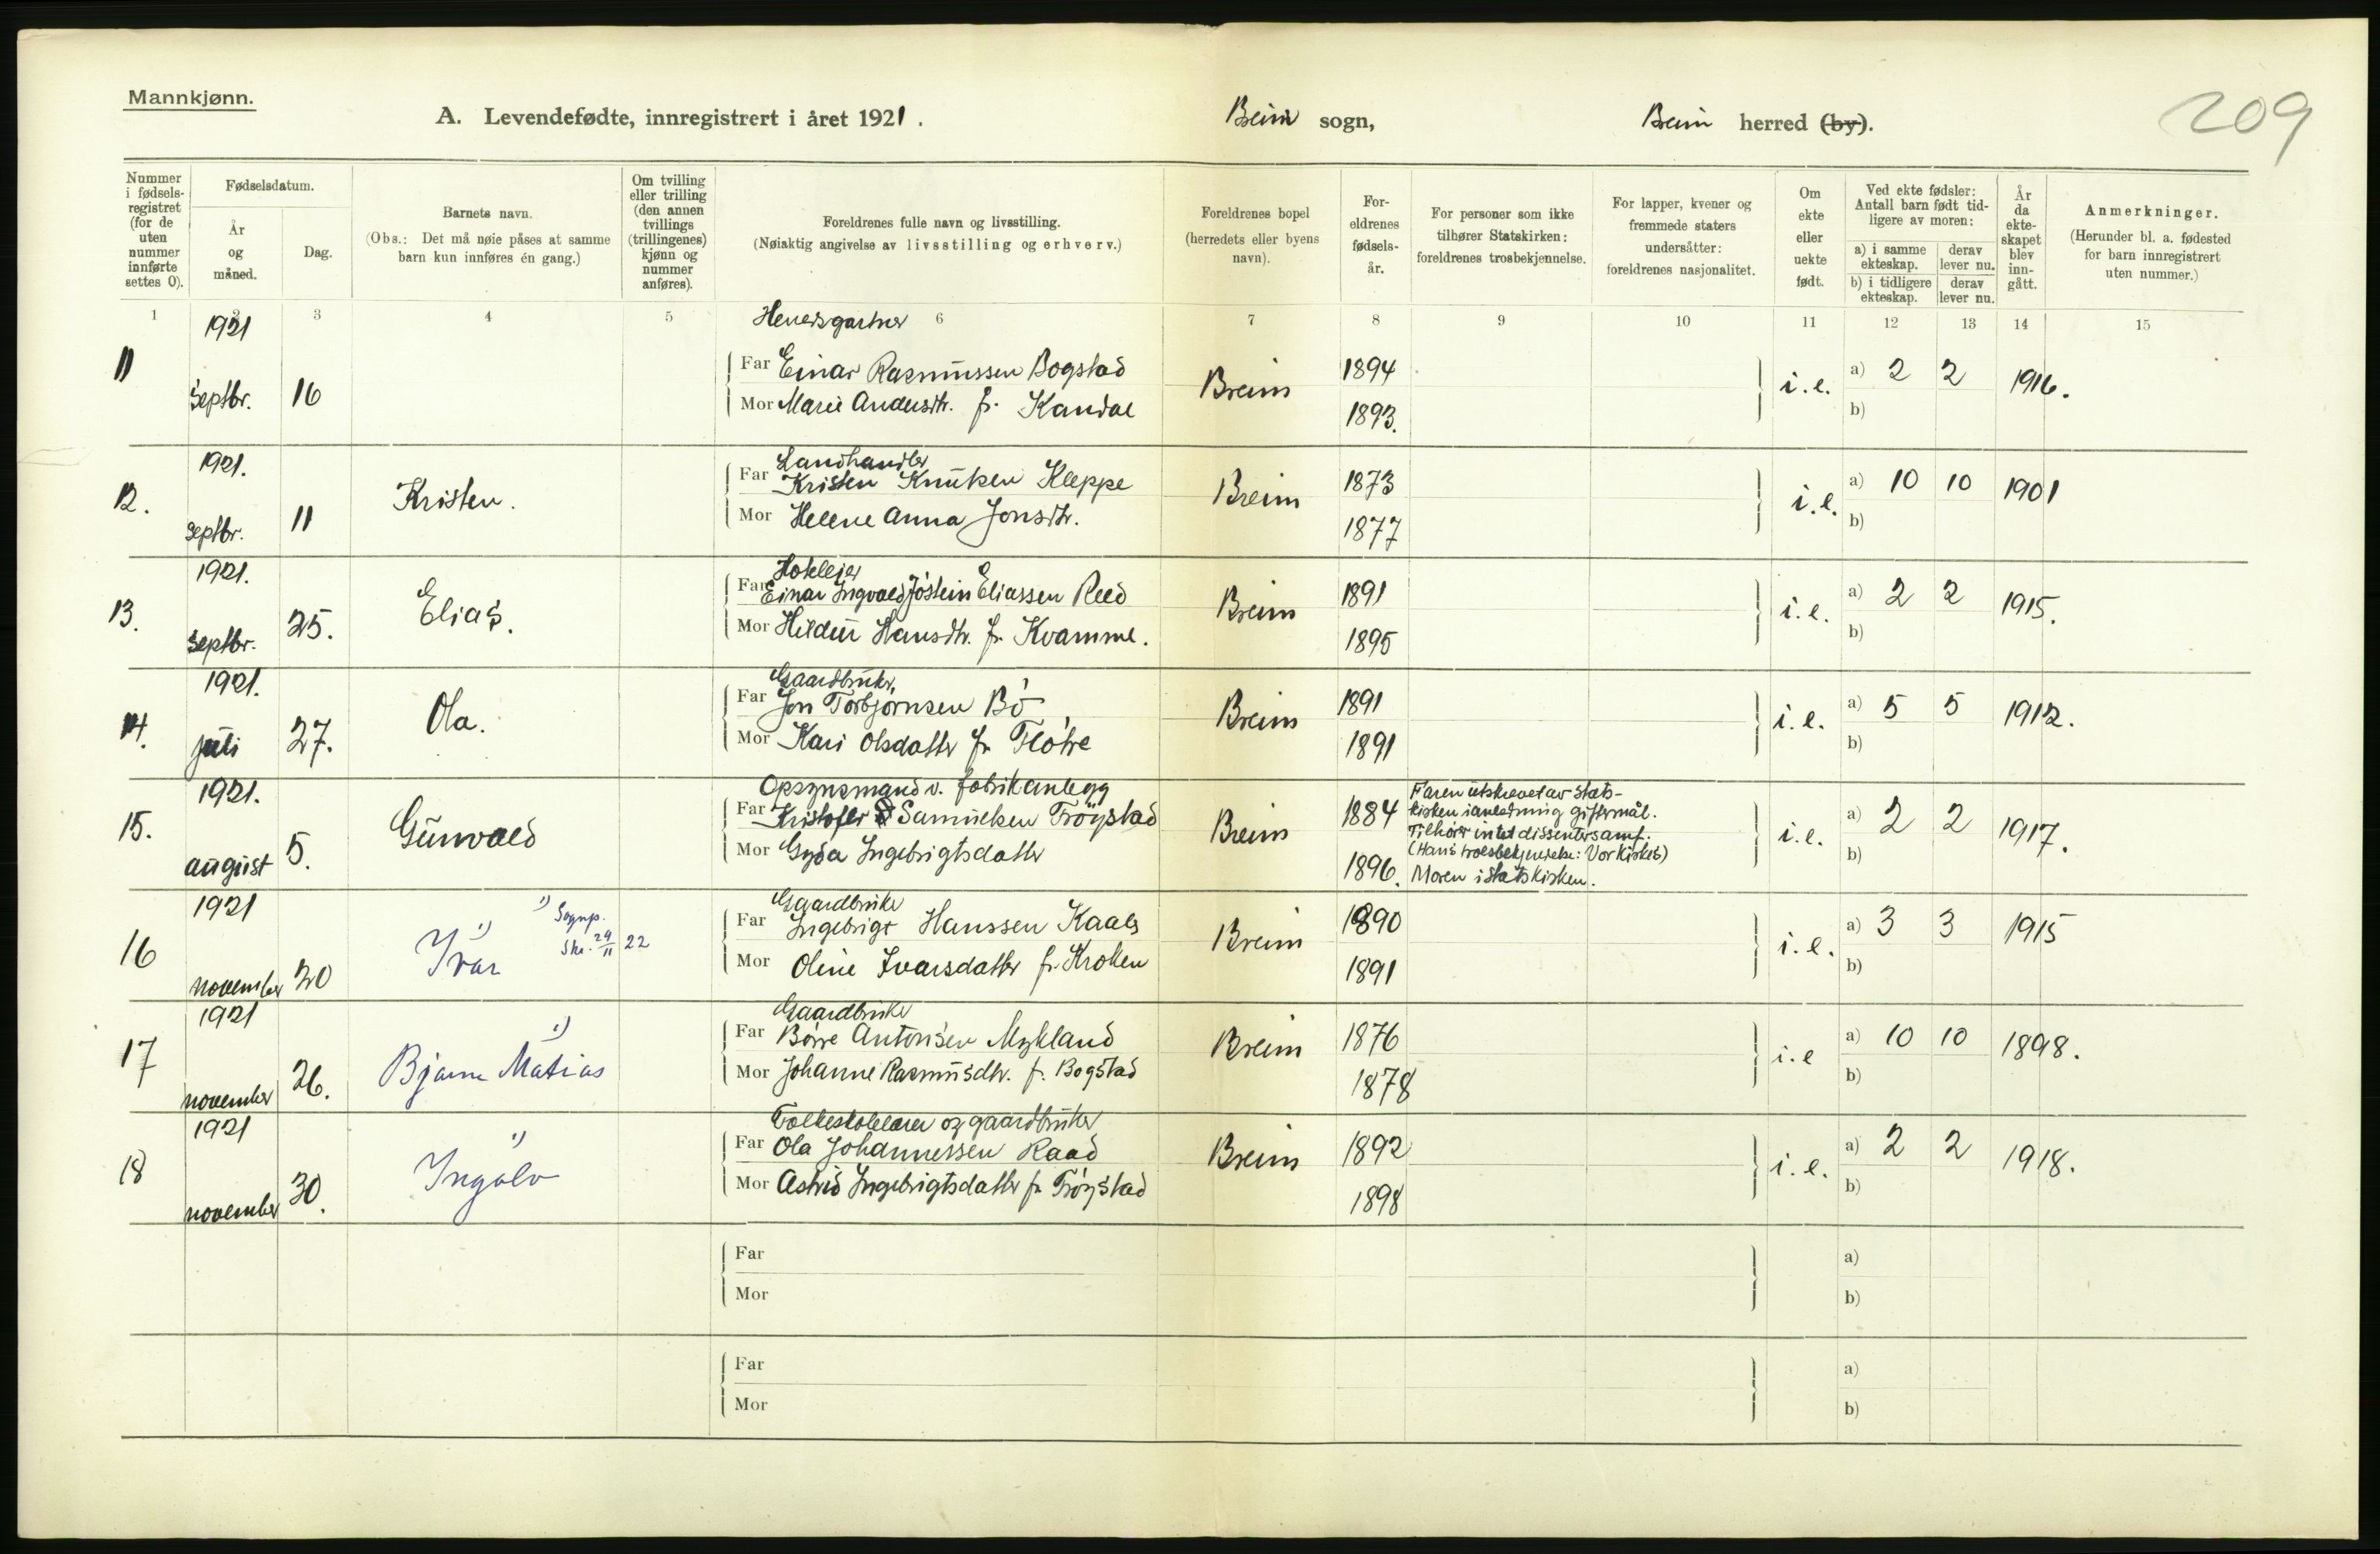 Mannkjønn.
A. Levendefødte, innregistrert i året 1921.
Breim sogn,
Breim herred (by).
209
Nummer i fødselsregistret (for de uten nummer innførte settes 0).
Fødselsdatum.
År og måned.
Dag.
Barnets navn.
(Obs.: Det må nøie påses at samme barn kun innføres én gang.)
Om tvilling eller trilling (den annen tvillings (trillingenes) kjønn og nummer anføres).
Foreldrenes fulle navn og livsstilling.
(Nøiaktig angivelse av livsstilling og erhverv.)
Foreldrenes bopel (herredets eller byens navn).
Foreldrenes fødselsår.
For personer som ikke tilhører Statskirken: foreldrenes trosbekjennelse.
For lapper, kvener og fremmede staters undersåtter: foreldrenes nasjonalitet.
Om ekte eller uekte født.
Ved ekte fødsler: Antall barn født tidligere av moren:
a) i samme ekteskap.
derav lever nu.
b) i tidligere ekteskap.
derav lever nu.
År da ekteskapet blev inngått.
Anmerkninger.
(Herunder bl. a. fødested for barn innregistrert uten nummer.)
1 3 4 5 6 7 8 9 10 11 12 13 14 15
11 1921 septbr. 16
Far Einar Rasmussen Bogstad
Mor Marie Andersdtr. fr. Kandal
Breim 1894 1893. i.e. a) 2 2 b) 1916.
12. 1921. septbr. 11 Kristen.
Landhandler
Far Kristen Knutsen Kleppe
Mor Helene Anna Jonsdtr.
Breim 1873 1877 i.e. a) 10 10 b) 1901
13. 1921. septbr. 25. Elias.
Hoteleier
Far Einar Ingvald Jóstein Eliassen Reed
Mor Hildur Hansdtr. fr. Kvamme.
Breim 1891 1895 i.e. a) 2 2 b) 1915.
14. 1921. juli 27. Ola.
Gaardbruker,
Far Jon Torbjørnsen Bö
Mor Kari Olsdatter fr. Flötre
Breim 1891 1891 i.e. a) 5 5 b) 1912.
15. 1921. august 5. Gunvald
Opsynsmand v. fabrikanlegg
Far Kristofer Samuelsen Tröystad
Mor Gyda Ingebrigtsdatter
Breim 1884 1896.
Faren utskrevet av stats-
kirken i anledning giftermål.
Tilhører intet dissentersamf.
(Hans troesbekjendelse: Vor kirkes)
Moren i statskirken.
i.e. a) 2 2 b) 1917.
16 1921 november 20 Ivar 1)
1) Sognp.
Skr. 29/11 22
Gaardbruker
Far Ingebrigt Hanssen Kaals
Mor Oline Ivarsdatter fr. Kroken
Breim 1890 1891 i.e. a) 3 3 b) 1915
17 1921 november 26. Bjarne Matias 1)
Gaardbruker
Far Börre Antonsen Mykland
Mor Johanne Rasmusdtr. fr. Bogstad
Breim 1876 1878 i.e a) 10 10 b) 1898.
18 1921 november 30. Ingolv 1)
Folkeskolelærer og gaardbruker
Far Ola Johannessen Raad
Mor Astrid Ingebrigtsdatter fr. Tröystad
Breim 1892 1898 i.e. a) 2 2 b) 1918.
Far
Mor
a)
b)
Far
Mor
a)
b)